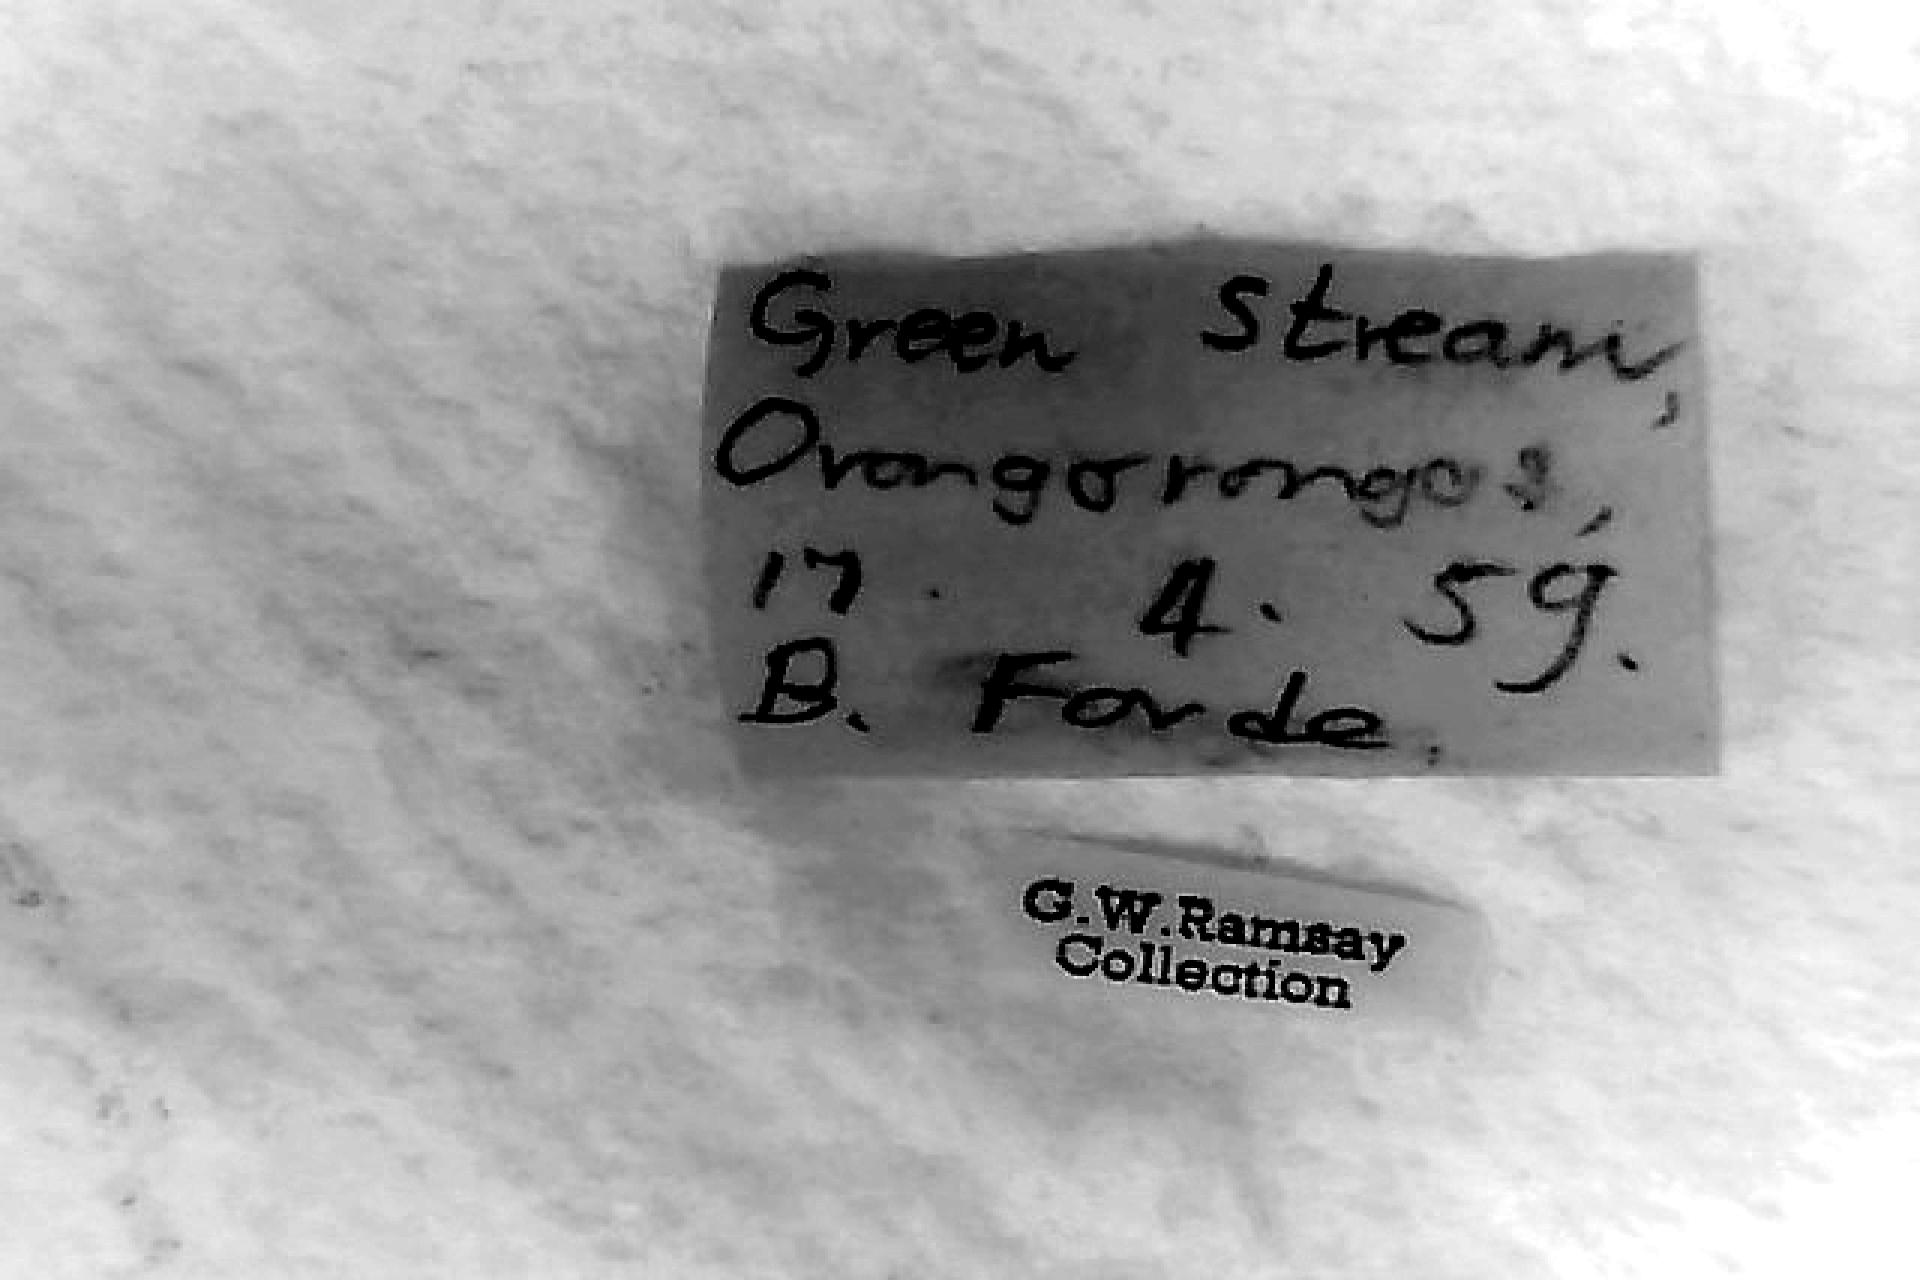 Green Stream,
Orongorongos,
17. 4. 59.
B. Forde.
G.W.Ramsay
Collection